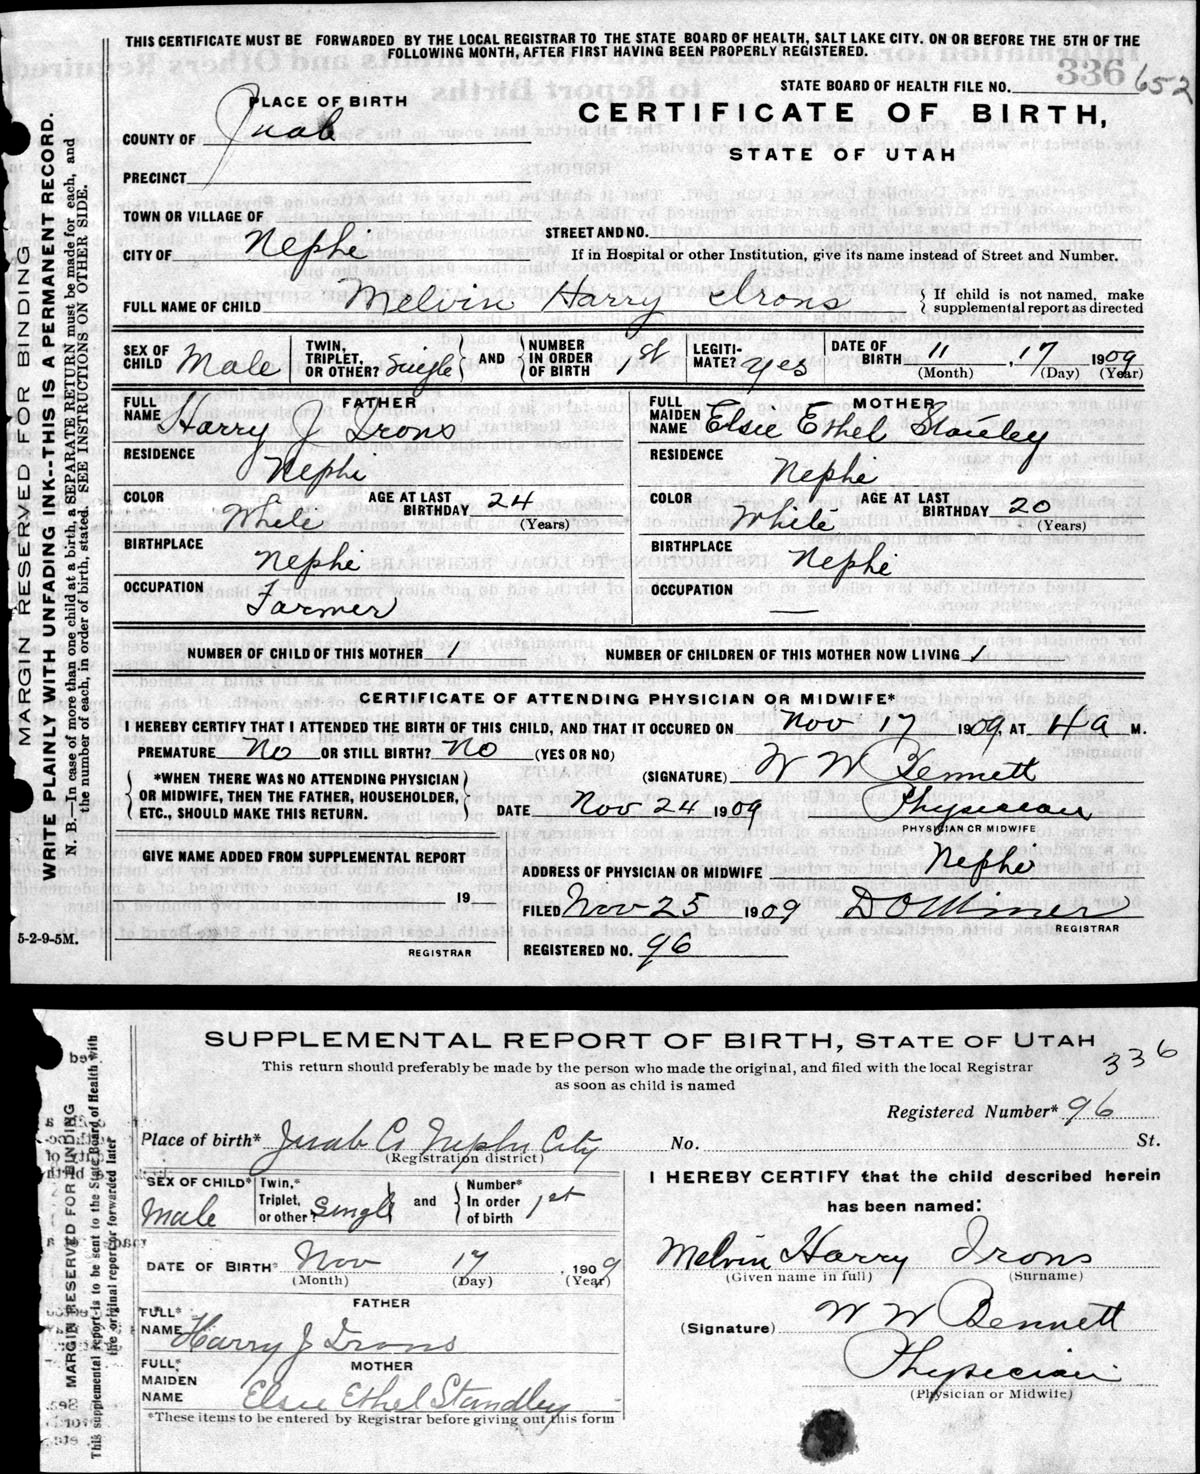 THIS CERTIFICATE MUST BE FORWARDED BY THE LOCAL REGISTRAR TO THE STATE BOARD OF HEALTH, SALT LAKE CITY. ON OR BEFORE THE 5TH OF THE
FOLLOWING MONTH, AFTER FIRST HAVING BEEN PROPERLY REGISTERED.
336
STATE BOARD OF HEALTH FILE NO. 652
PLACE OF BIRTH
CERTIFICATE OF BIRTH,
COUNTY OF Juab
STATE OF UTAH
PRECINCT
TOWN OR VILLAGE OF
STREET AND NO.
CITY OF Nephi
If in Hospital or other Institution, give its name instead of Street and Number.
FULL NAME OF CHILD Melvin Harry Irons
{ If child is not named, make
supplemental report as directed
SEX OF CHILD Male
TWIN, TRIPLET, OR OTHER? Single } AND { NUMBER IN ORDER OF BIRTH 1st
LEGITIMATE? yes
DATE OF BIRTH 11, 17 1909
(Month) (Day) (Year)
FATHER
FULL NAME Harry J Irons
RESIDENCE Nephi
COLOR White AGE AT LAST BIRTHDAY 24
(Years)
BIRTHPLACE Nephi
OCCUPATION Farmer
MOTHER
FULL MAIDEN NAME Elsie Ethel Stanley
RESIDENCE Nephi
COLOR White AGE AT LAST BIRTHDAY 20
(Years)
BIRTHPLACE Nephi
OCCUPATION —
NUMBER OF CHILD OF THIS MOTHER 1 NUMBER OF CHILDREN OF THIS MOTHER NOW LIVING 1
CERTIFICATE OF ATTENDING PHYSICIAN OR MIDWIFE*
I HEREBY CERTIFY THAT I ATTENDED THE BIRTH OF THIS CHILD, AND THAT IT OCCURED ON Nov 17 1909, AT 4 a M.
PREMATURE No OR STILL BIRTH? No (YES OR NO)
{ *WHEN THERE WAS NO ATTENDING PHYSICIAN
OR MIDWIFE, THEN THE FATHER, HOUSEHOLDER,
ETC., SHOULD MAKE THIS RETURN. }
(SIGNATURE) W W Bennett
DATE Nov 24 1909 Physician
PHYSICIAN OR MIDWIFE
GIVE NAME ADDED FROM SUPPLEMENTAL REPORT
19
REGISTRAR
ADDRESS OF PHYSICIAN OR MIDWIFE Nephi
FILED Nov 25 1909 D O Miner
REGISTRAR
REGISTERED NO. 96
5-2-9-5M.
MARGIN RESERVED FOR BINDING
WRITE PLAINLY WITH UNFADING INK--THIS IS A PERMANENT RECORD.
N. B.—In case of more than one child at a birth, a SEPARATE RETURN must be made for each, and
the number of each, in order of birth, stated. SEE INSTRUCTIONS ON OTHER SIDE.
SUPPLEMENTAL REPORT OF BIRTH, STATE OF UTAH
336
This return should preferably be made by the person who made the original, and filed with the local Registrar
as soon as child is named
Registered Number* 96
Place of birth* Juab Co Nephi City No. St.
(Registration district)
SEX OF CHILD* Male
Twin,* Triplet, or other? Single } and { Number* In order of birth 1st
DATE OF BIRTH* Nov 17, 1909
(Month) (Day) (Year)
FATHER
FULL* NAME Harry J Irons
MOTHER
FULL* MAIDEN NAME Elsie Ethel Standley
*These items to be entered by Registrar before giving out this form
I HEREBY CERTIFY that the child described herein
has been named:
Melvin Harry Irons
(Given name in full) (Surname)
(Signature) W W Bennett
Physician
(Physician or Midwife)
MARGIN RESERVED FOR BINDING
This supplemental report is to be sent to the State Board of Health with
the original report or forwarded later